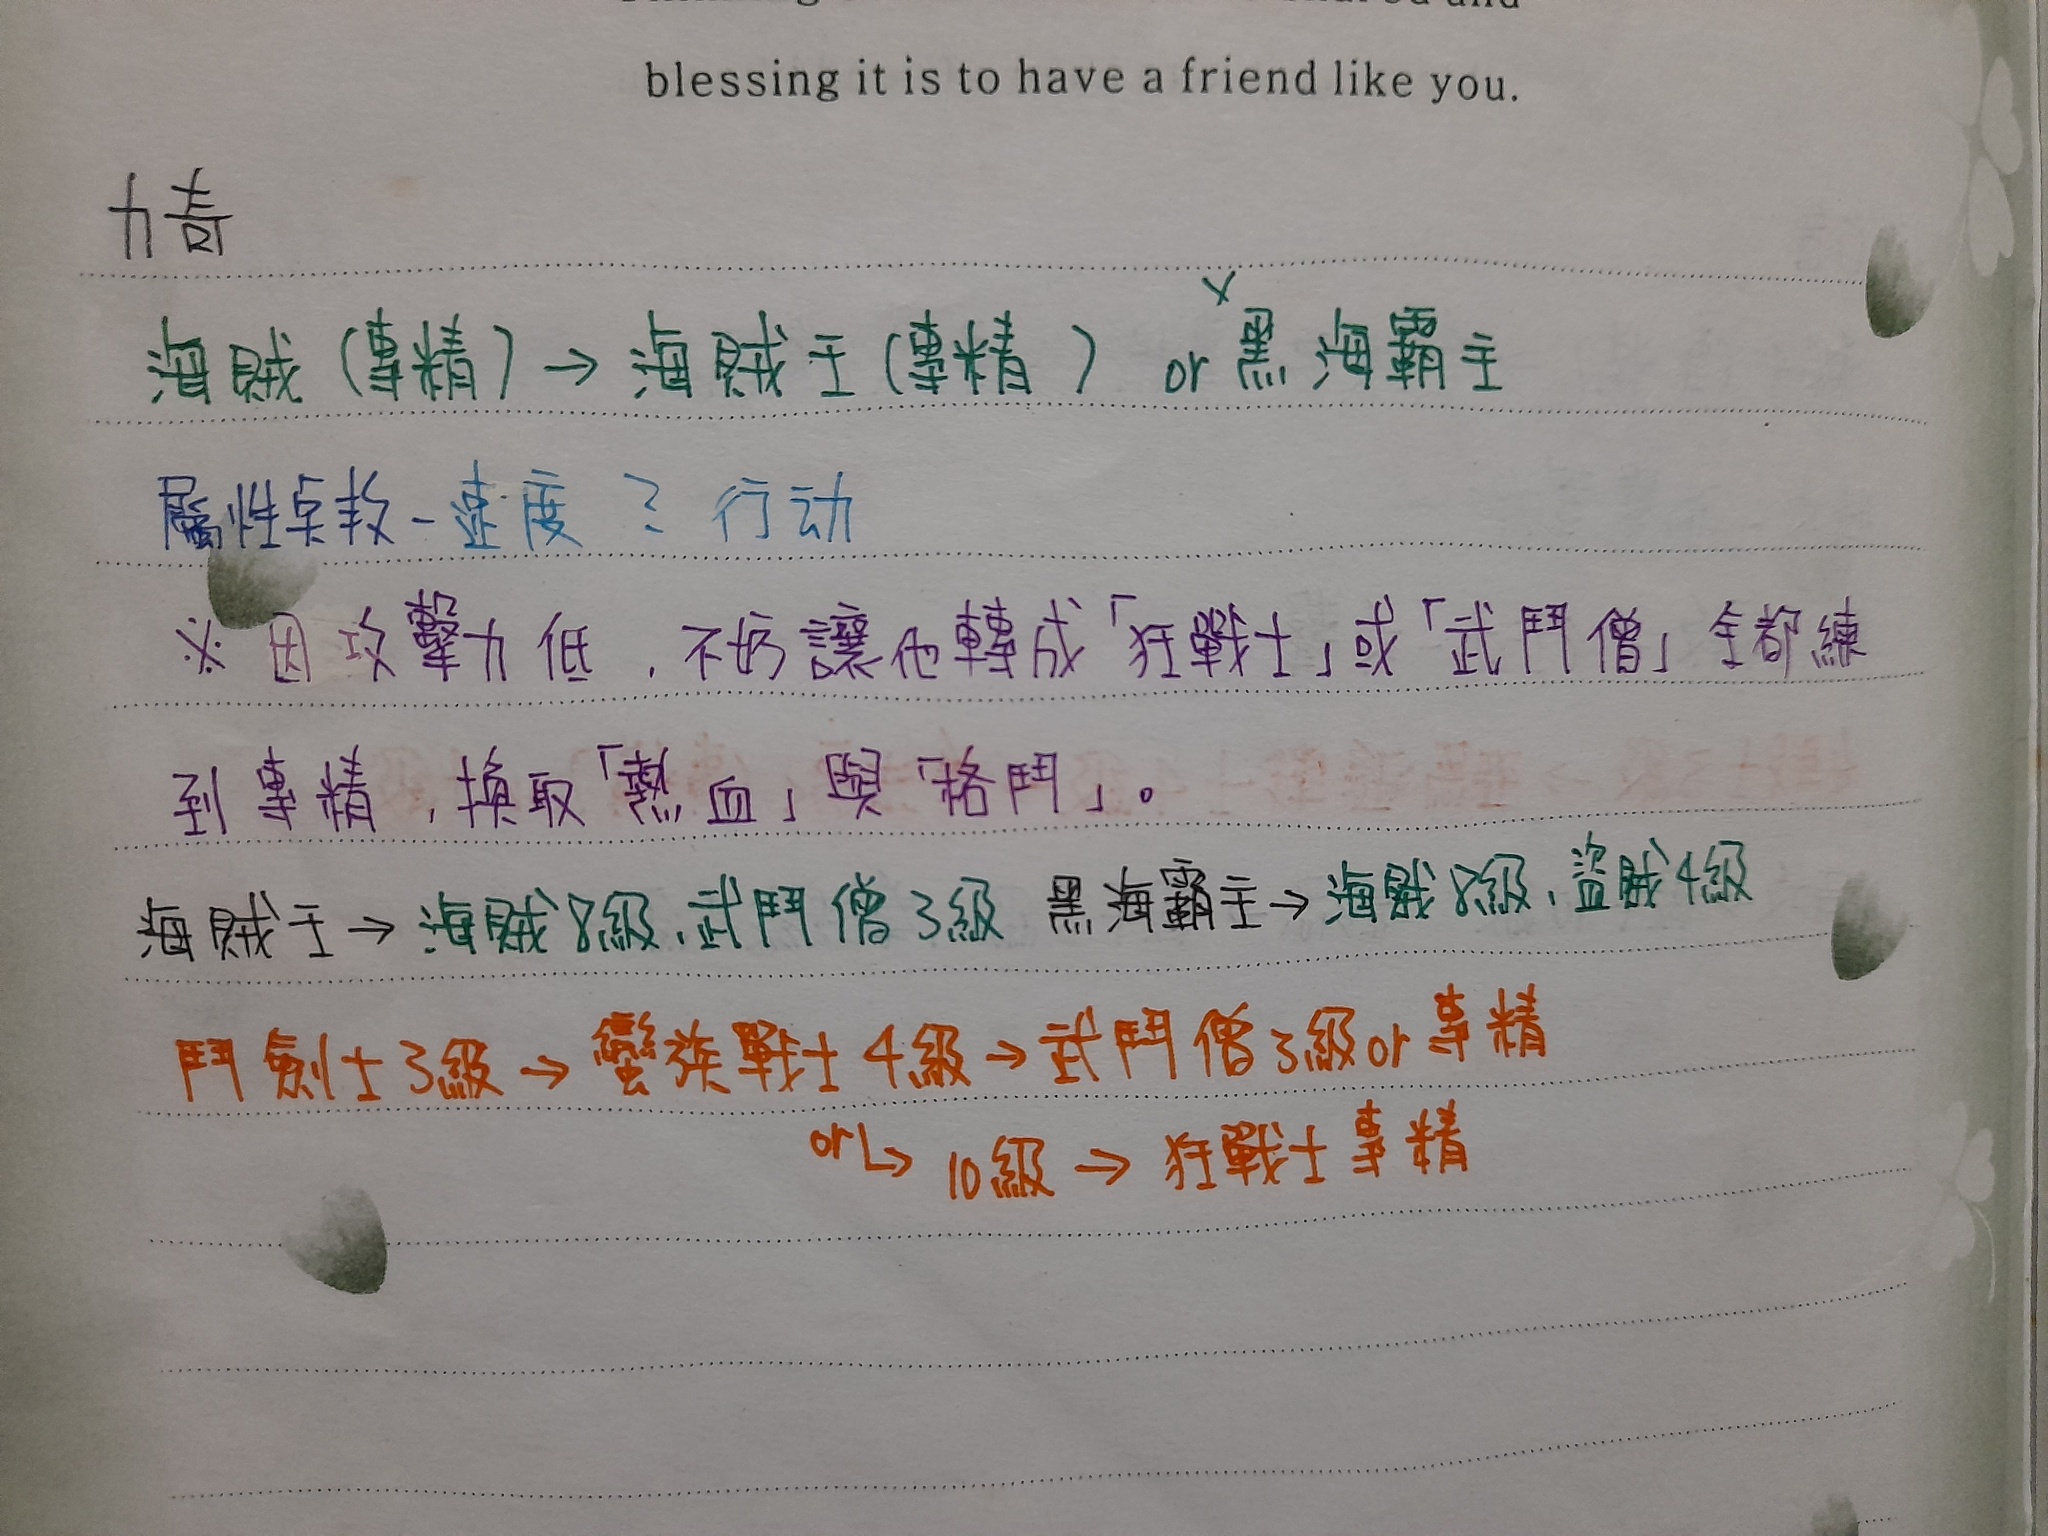 blessing it is to have a friend like you.
力奇
海賊(專精)→海賊王(專精) or 黑海霸主
屬性卓教-速度 ? 行动
※因攻擊力低,不妨讓他轉成「狂戰士」或「武鬥僧」全都練
到專精,換取「熱血」與「格鬥」。
海賊王→海賊8級、武鬥僧3級 黑海霸主→海賊8級、盜賊4級
鬥劍士3級→蠻族戰士4級→武鬥僧3級or專精
or↳10級→狂戰士專精